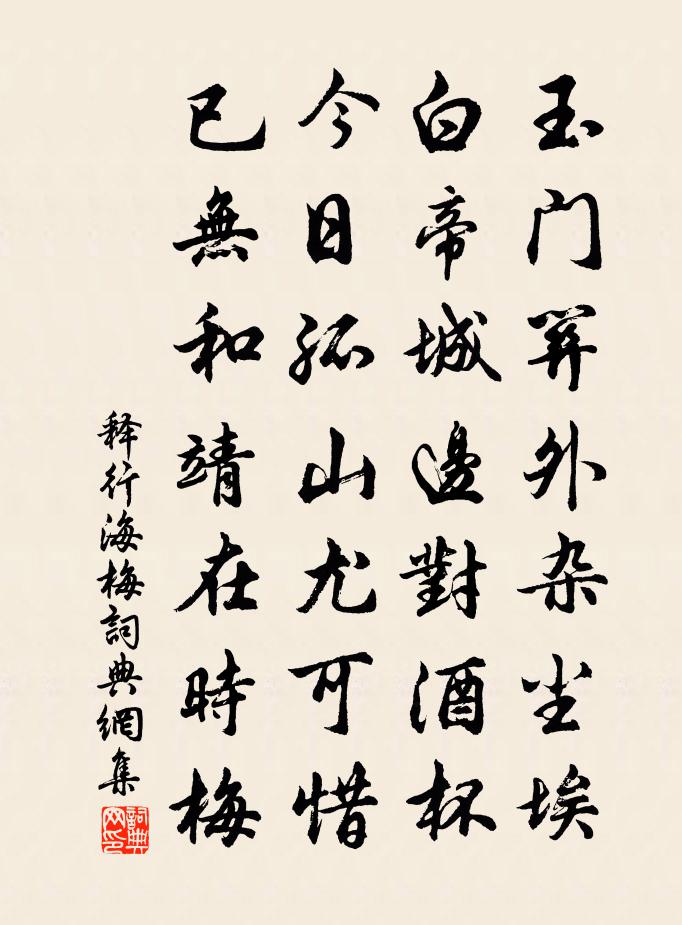 玉门关外杂尘埃
白帝城邊對酒杯
今日孤山尤可惜
已無和靖在時梅
释行海梅詞典網集
詞典
网印